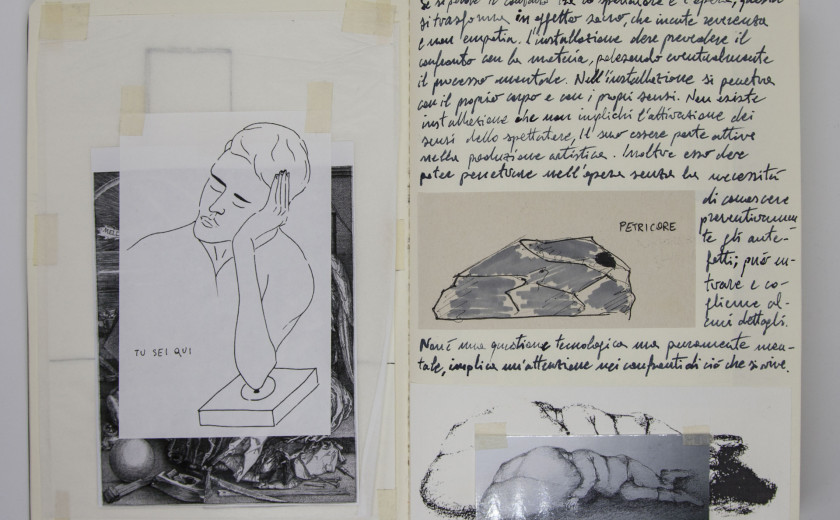 TU SEI QUI
si trasforma in effetto salvo, che incute reverenza
e non empatia. L'installazione deve prevedere il
confronto con la materia, palesando eventualmente
il processo mentale. Nell'installazione si penetra
con il proprio corpo e con i propri sensi. Non esiste
installazione che non implichi l'attivazione dei
sensi dello spettatore, il suo essere parte attiva
nella produzione artistica. Inoltre esso deve
poter penetrare nell'opera senza la necessità
di conoscere
preventivamen
te gli ante-
fatti; può en-
trare e co-
glierne al-
cuni dettagli.
PETRICORE
Non è una questione tecnologica ma puramente men-
tale, implica un'attenzione nei confronti di ciò che si vive.